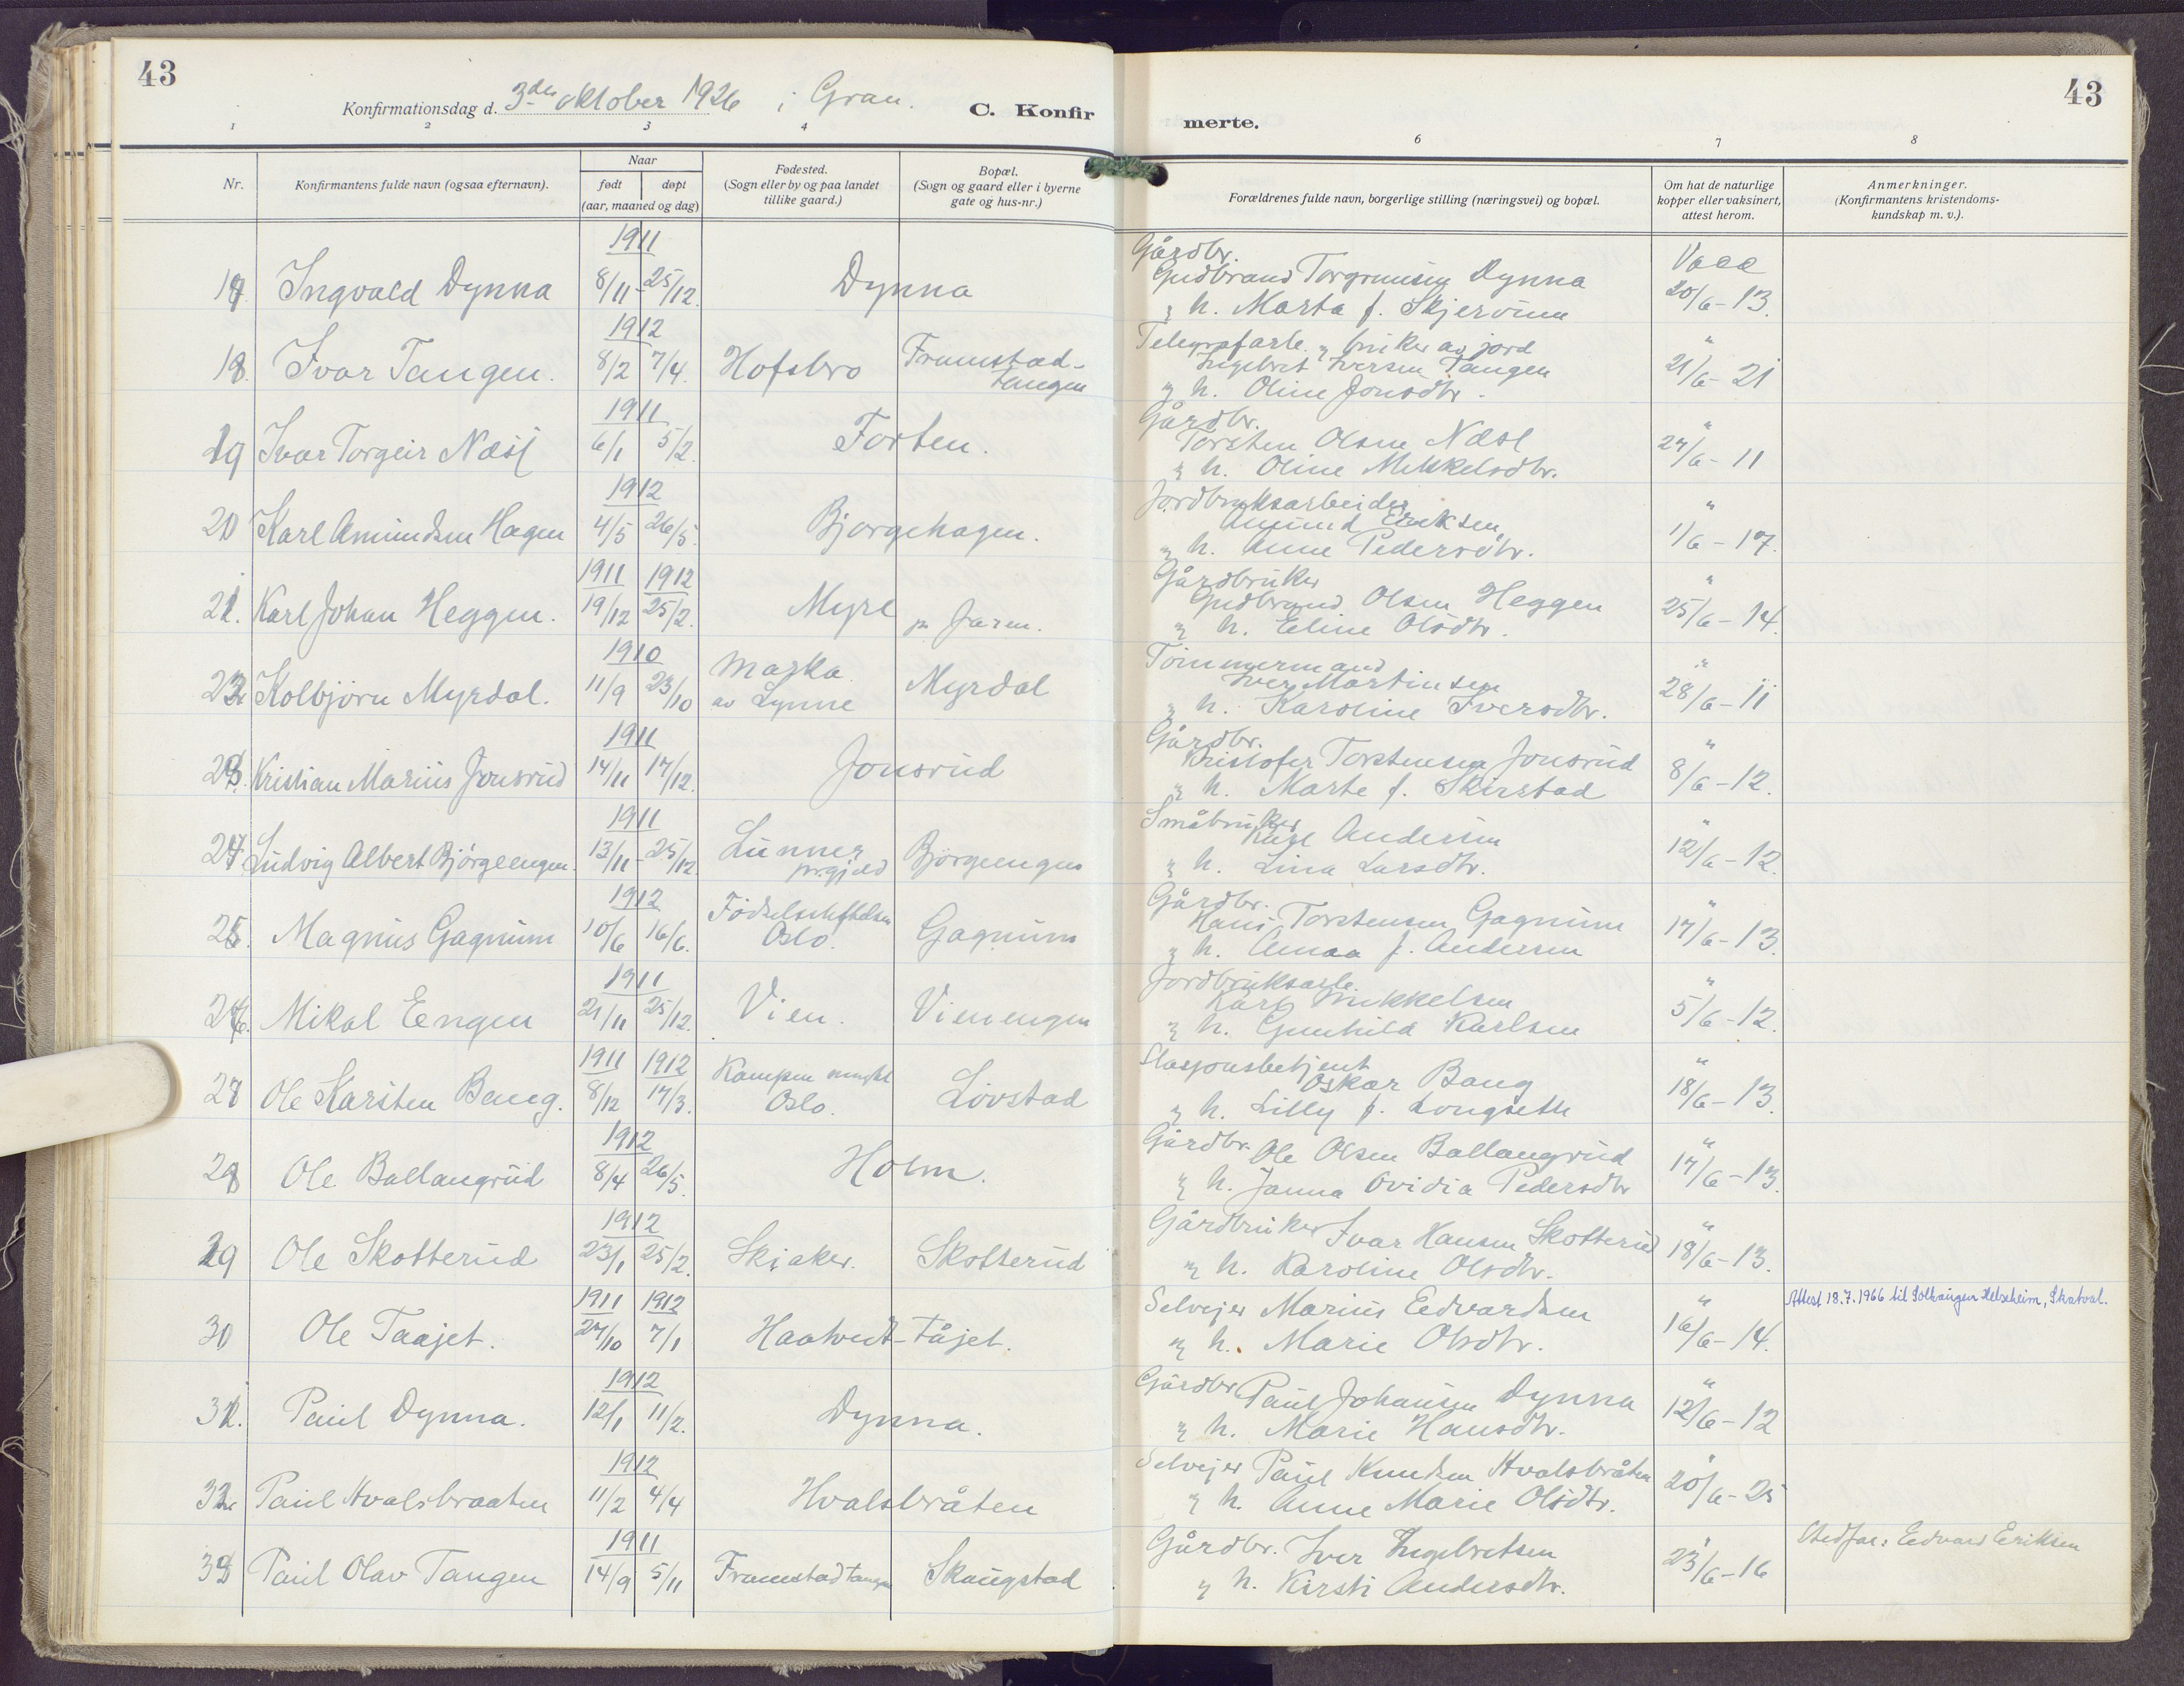 43
Konfirmationsdag d. 3die oktober 1926 i Gran.
C. Konfirmerte.
43
1 2 3 4 6 7 8
Nr.
Konfirmantens fulde navn (ogsaa efternavn).
Naar
født døpt
(aar, maaned og dag)
Fødested.
(Sogn eller by og paa landet
tillike gaard.)
Bopæl.
(Sogn og gaard eller i byerne
gate og hus-nr.)
Forældrenes fulde navn, borgerlige stilling (næringsvei) og bopæl.
Om hat de naturlige
kopper eller vaksinert,
attest herom.
Anmerkninger.
(Konfirmantens kristendoms-
kundskap m. v.).
1911
Gårdbr.
Vacc
Ingvald Dynna 8/11 - 25/12. Dynna Gudbrand Torgrimsen Dynna 20/6-13.
h. Marta f. Skjervum
1912
Telegrafarb. bruker av jord "
18. Ivar Tangen. 8/2 7/4. Hofsbro Framstad-tangen Ingebret Iversen Tangen 21/6-21
h. Oline Jonsdtr.
1911
Gårdbr. "
19 Ivar Torgeir Næsl 6/1 5/2. Forten. Torsten Olsen Næsl 27/6-11
h. Oline Mikkelsdtr.
1912
Jordbruksarbeider "
20 Karl Amundsen Hagen 4/5 26/5. Bjørgehagen. Amund Eriksen 1/6-17.
h. Anne Pedersdtr.
1911 1912
Gårdbruker "
21. Karl Johan Heggen. 19/12 25/2. Myre Jaren. Gudbrand Olsen Heggen 25/6-14.
h. Eline Olsdtr.
1910
Tømmermand "
22 Kolbjørn Myrdal. 11/9 23/10 Marka av Lynne Myrdal Iver Martinsen 28/6-11
h. Karoline Iversdtr.
1911
Gårdbr. "
23. Kristian Marius Jonsrud 14/11 17/12. Jonsrud Kristofer Torstensen Jonsrud 8/6-12.
h. Marte f. Skirstad
1911
Småbruker "
24 Ludvig Albert Bjørgeengen. 13/11 - 25/12. Lunner pr.gjeld Bjørgeengen Karl Andersen 12/6-12.
h. Lina Larsdtr.
1912
Gårdbr. "
25. Magnus Gagnum 10/6 16/6. Fødselsstiftelsen Oslo. Gagnum Hans Torstensen Gagnum 17/6-13.
h. Anna f. Andersen
1911
Jordbruksarb. "
26. Mikal Eengen 21/11 25/12. Vien. Vienengen Karl Mikkelsen 5/6-12.
h. Gunhild Karlsen
1911 1912
Stasjonsbetjent "
27 Ole Karsten Bang. 8/12 17/3. Kampen Oslo. Lovstad Oskar Bang 18/6-13.
h. Lilly f. Longseth
1912
"
28 Ole Ballangrud 8/4 26/5. Holm. Gårdbr. Ole Olsen Ballangrud 17/6-13.
h. Janna Ovidia Pedersdtr
1912
"
29 Ole Skotterud 23/1 25/2. Skiaker. Skotterud Gårdbruker Ivar Hansen Skotterud 18/6-13.
h. Karoline Olsdtr.
1911 1912
" Attest 18.7.1966 til Solhaugen Helseheim, Skatval.
30 Ole Taajet. 27/10 7/1 Haatvedt-tåjet. Selvejer Marius Eedvardsen 16/6-14.
h. Marie Olsdtr.
1912
"
31. Paul Dynna. 12/1 11/2. Dynna. Gårdbr. Paul Johansen Dynna 12/6-12
h. Marie Hansdtr.
1912
"
32 Paul Hvalsbraaten 11/2 4/4 Hvalsbråten Selvejer Paul Knudsen Hvalsbråten 20/6-25
h. Anne Marie Olsdtr.
1911
" Stedfar: Eedvard Eriksen
33 Paul Olav Tangen 14/9 5/11 Framstadtangen Skaugstad Gårdbr. Iver Ingebretsen 23/6-16
h. Kirsti Andersdtr.